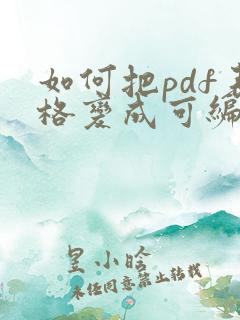 如何把pdf表
格变成可编
星小晗
未经同意禁止转载